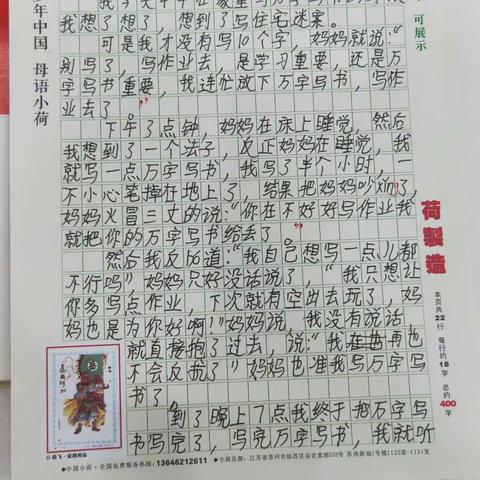 我想了想了，想到了写住宅迷案。
可是我才没有写10个字，妈妈就说：“
别写了，写作业去，是学习重要，还是万
字写书重要，我连忙放下万字写书，写作
业去了。”
下午了点钟，妈妈在床上睡觉，然后
我想到了一个法子，反正妈妈在睡觉，我
就写一点万字写书，我写了半个小时，一
不小心笔掉在地上了，结果把妈妈吵xing了，
妈妈火冒三丈的说：“你在不好好写作业我
就把你的万字写书给去了。”
然后我反bó道：“我自己想写一点儿都
不行吗”妈妈只好没话说了，“我只想让
你多写点作业，下次就有空出去玩了，妈
妈也是为你好啊！”妈妈说，我没有说话，
就直接抱了过去，说：“我再也
不会反抗了”妈妈也准我写万字写
书了
到了晚上7点我终于把万字写
书写完了，写完万字写书，我就听
年中国 母语小荷
可展示
荷製造
本页共22行 每行约18字 总约400字
◆中国小荷·全国免费服务热线：13646212611 ◆小荷总部：江苏省苏州市姑苏区总官堂路555号 苏尚新地1号楼1125室-1131室